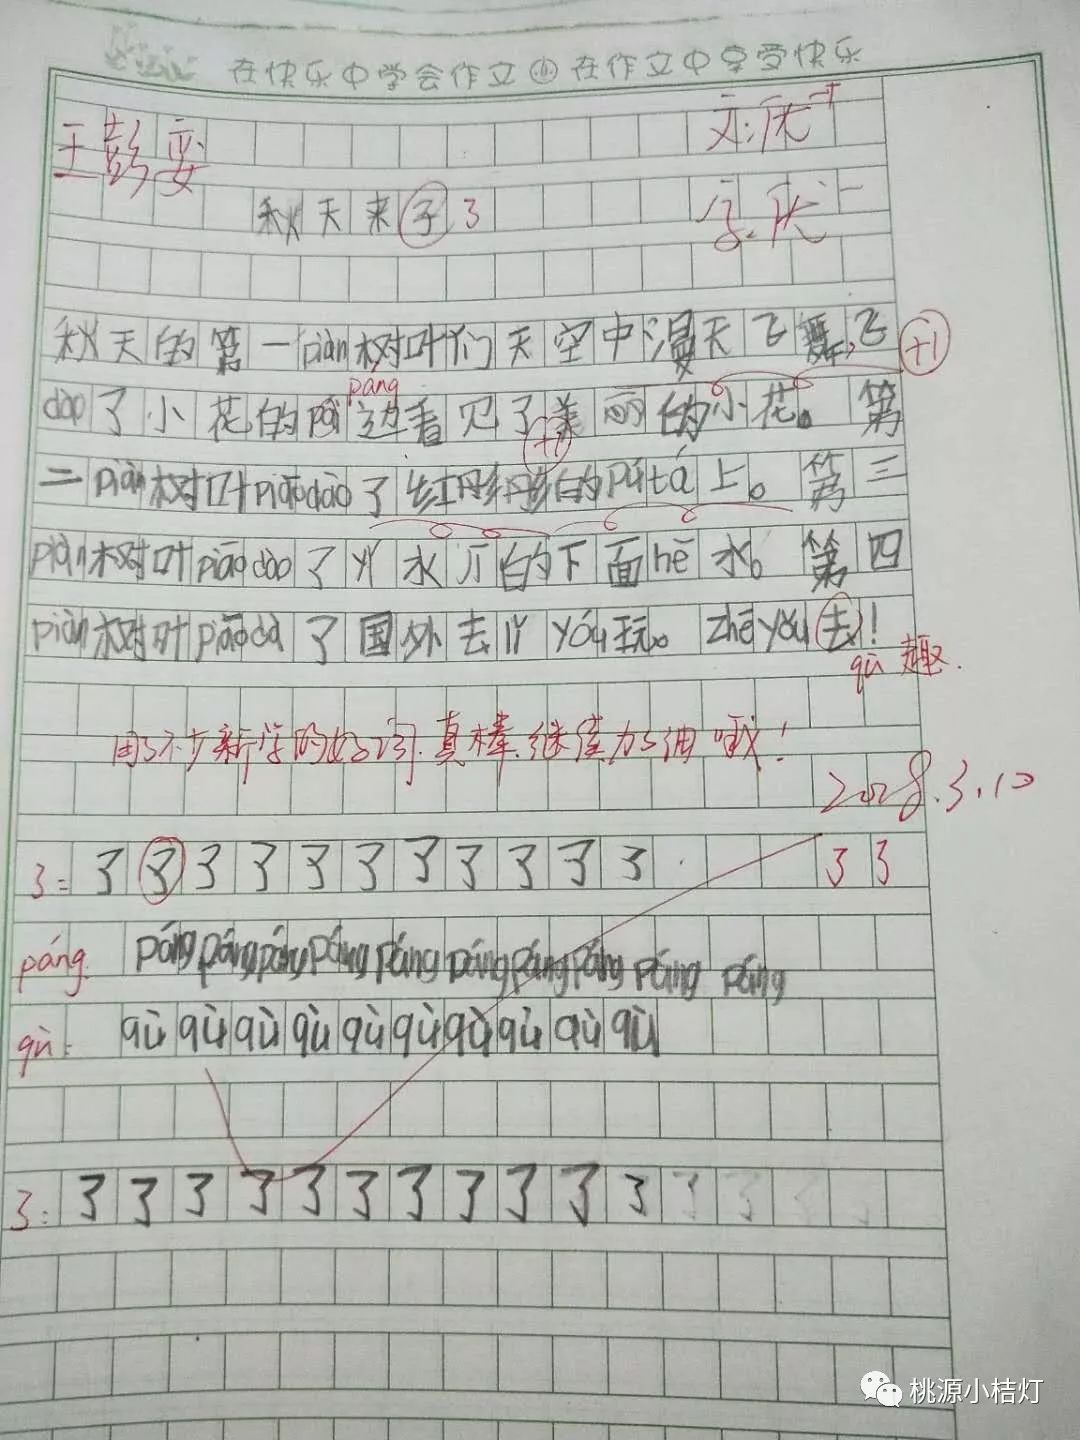 在快乐中学会作文 在作文中享受快乐
王彭
秋天来子 了
秋天的第一piàn树叶们天空中漫天飞舞,飞 +1
páng
dào了小花的pái边看见了美丽的小花。第
+1
二piàn树叶piāodào了红彤彤的的pútá上。第三
piàn树叶piāodào了水的下面hē水。第四
piàn树叶piāodà了国外去yóu玩。zhēyǒu去!
qù 趣.
用了不少新学的好词.真棒.继续加油哦!
2018.3.10
了: 了 了 了 了 了 了 了 了 了 了 了 了 了
páng. páng páng páng páng páng páng páng páng páng páng
qù: qù qù qù qù qù qù qù qù qù qù
了: 了 了 了 了 了 了 了 了 了 了 了
桃源小桔灯